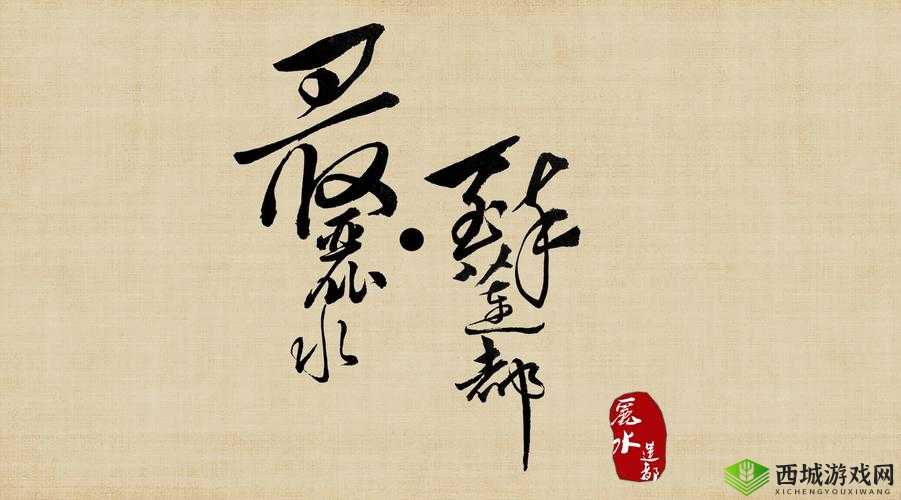 最麗水
·
蓮都
麗水
蓮都
西城游戏网
XICHENGYOUXIWANG